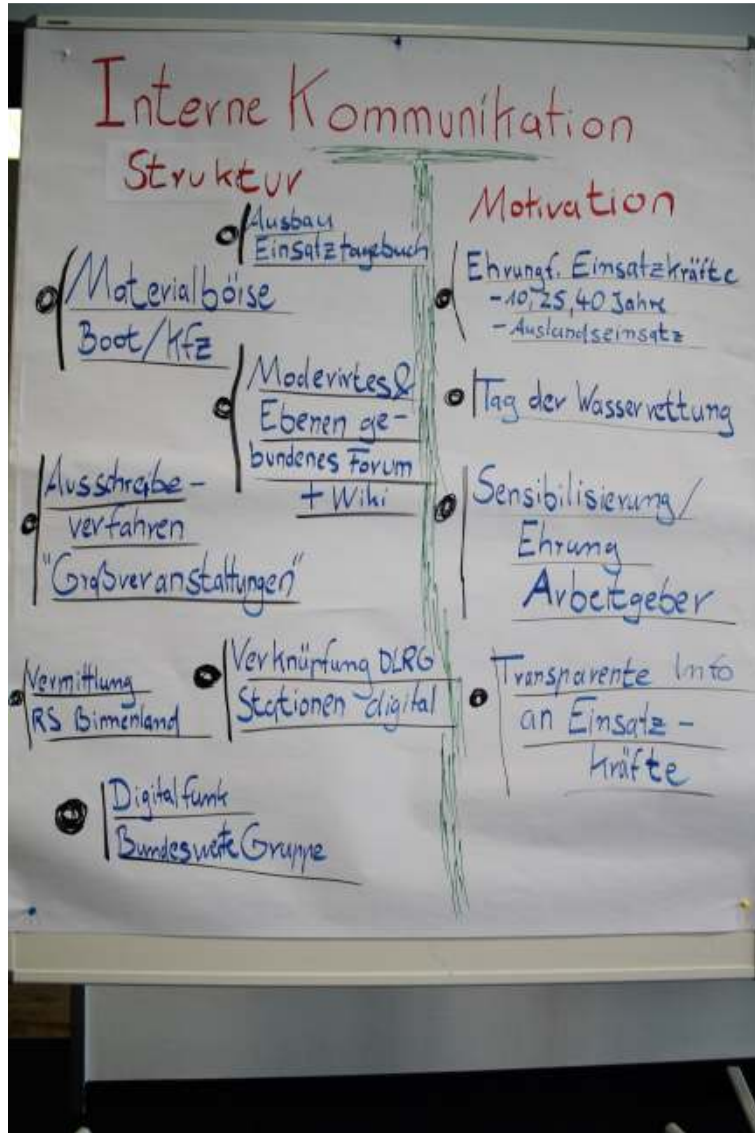 Interne Kommunikation
Struktur
Ausbau
Einsatztagebuch
Materialbörse
Boot/Kfz
Moderirtes &
Ebenen ge-
bundenes Forum
+ Wiki
Ausschreibe-
verfahren
"Großveranstaltungen"
Verknüpfung DLRG
Stationen digital
Vermittlung
RS Binnenland
Digitalfunk
Bundesweite Gruppe
Motivation
Ehrung f. Einsatzkräfte
- 10, 25, 40 Jahre
- Auslandseinsatz
Tag der Wasserrettung
Sensibilisierung/
Ehrung
Arbeitgeber
Transparente Info
an Einsatz-
kräfte